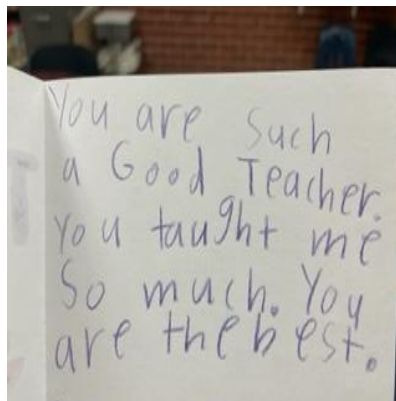 You are such
a Good Teacher.
You taught me
So much. You
are the best.